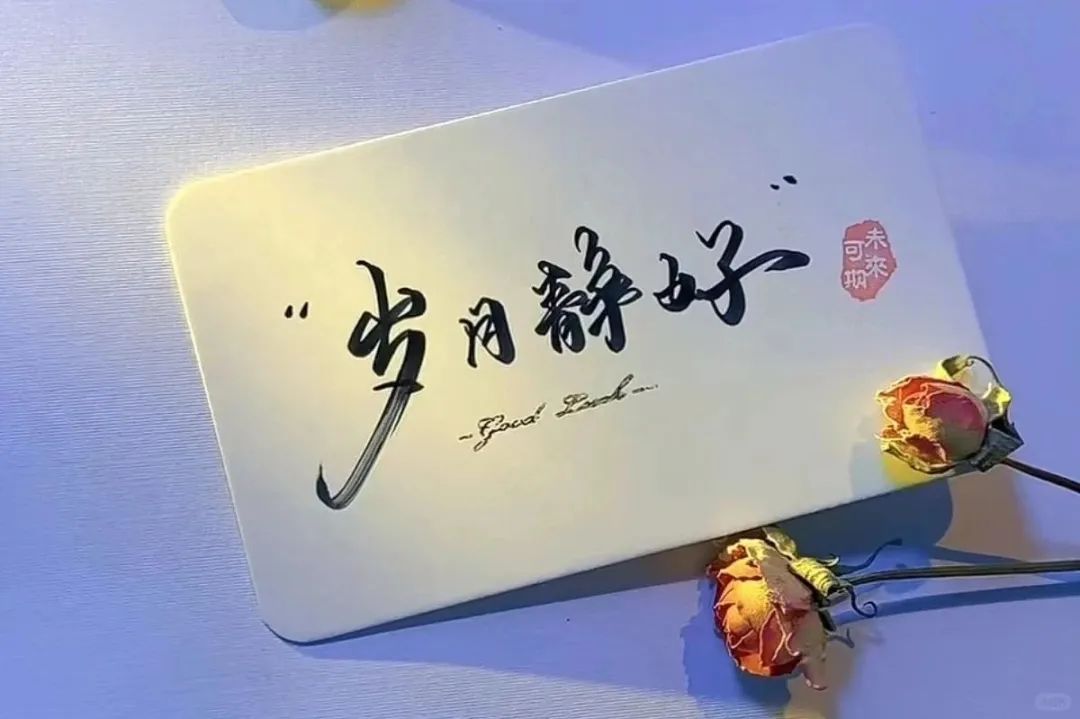 "岁月静好"
-Good Luck-
未來
可期